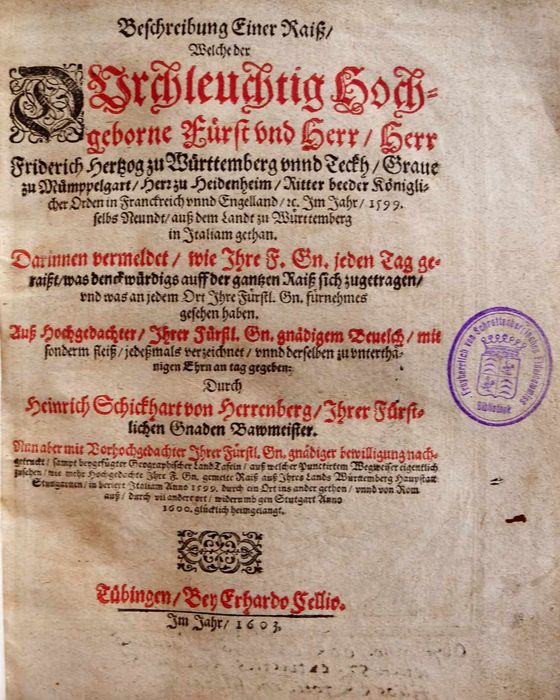 Beschreibung Einer Raiß/
Welche der
DUrchleuchtig Hoch-
geborne Fürst vnd Herr/ Herr
Friderich Hertzog zu Württemberg vnnd Teckh/ Graue
zu Mümppelgart/ Herr zu Heidenheim/ Ritter beeder Königli-
cher Orden in Franckreich vnnd Engelland/ ꝛc. Im Jahr/ 1599.
selbs Neundt/ auß dem Landt zu Württemberg
in Italiam gethan.
Darinnen vermeldet/ wie Ihre F. Gn. jeden Tag ge-
raißt/ was denckwürdigs auff der gantzen Raiß sich zugetragen/
vnd was an jedem Ort Ihre Fürstl. Gn. fürnehmes
gesehen haben.
Auß Hochgedachter/ Ihrer Fürstl. Gn. gnädigem Beuelch/ mit
sonderm fleiß/ jedeßmals verzeichnet/ vnnd derselben zu vnterthä-
nigen Ehrn an tag gegeben:
Durch
Heinrich Schickhart von Herrenberg/ Ihrer Fürst-
lichen Gnaden Bawmeister.
Nun aber mit Vorhochgedachter Ihrer Fürstl. Gn. gnädiger bewilligung nach-
getruckt/ sampt beygefügter Geographischer LandTafeln/ auß welcher Punctirtem Wegweiser eigentlich
zusehen/ wie mehr Hochgedachte Ihre F. Gn. gemelte Raiß auß Ihres Lands Württemberg Hauptstatt
Stutgarten/ in beriert Italiam Anno 1599. durch ein Ort ins ander gethon/ vnnd von Rom
auß/ durch vil andere ort/ widerumb gen Stutgart Anno
1600. glücklich heimgelangt.
Tübingen/ Bey Erhardo Cellio.
Im Jahr/ 1603.
Freyherrlich von Schrottenberg'sches
Bibliothek